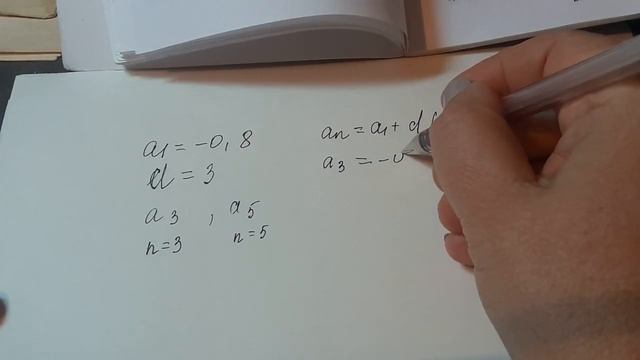 a1 = -0,8
d = 3
a3 , a5
n=3 n=5
an = a1 + d
a3 = -0